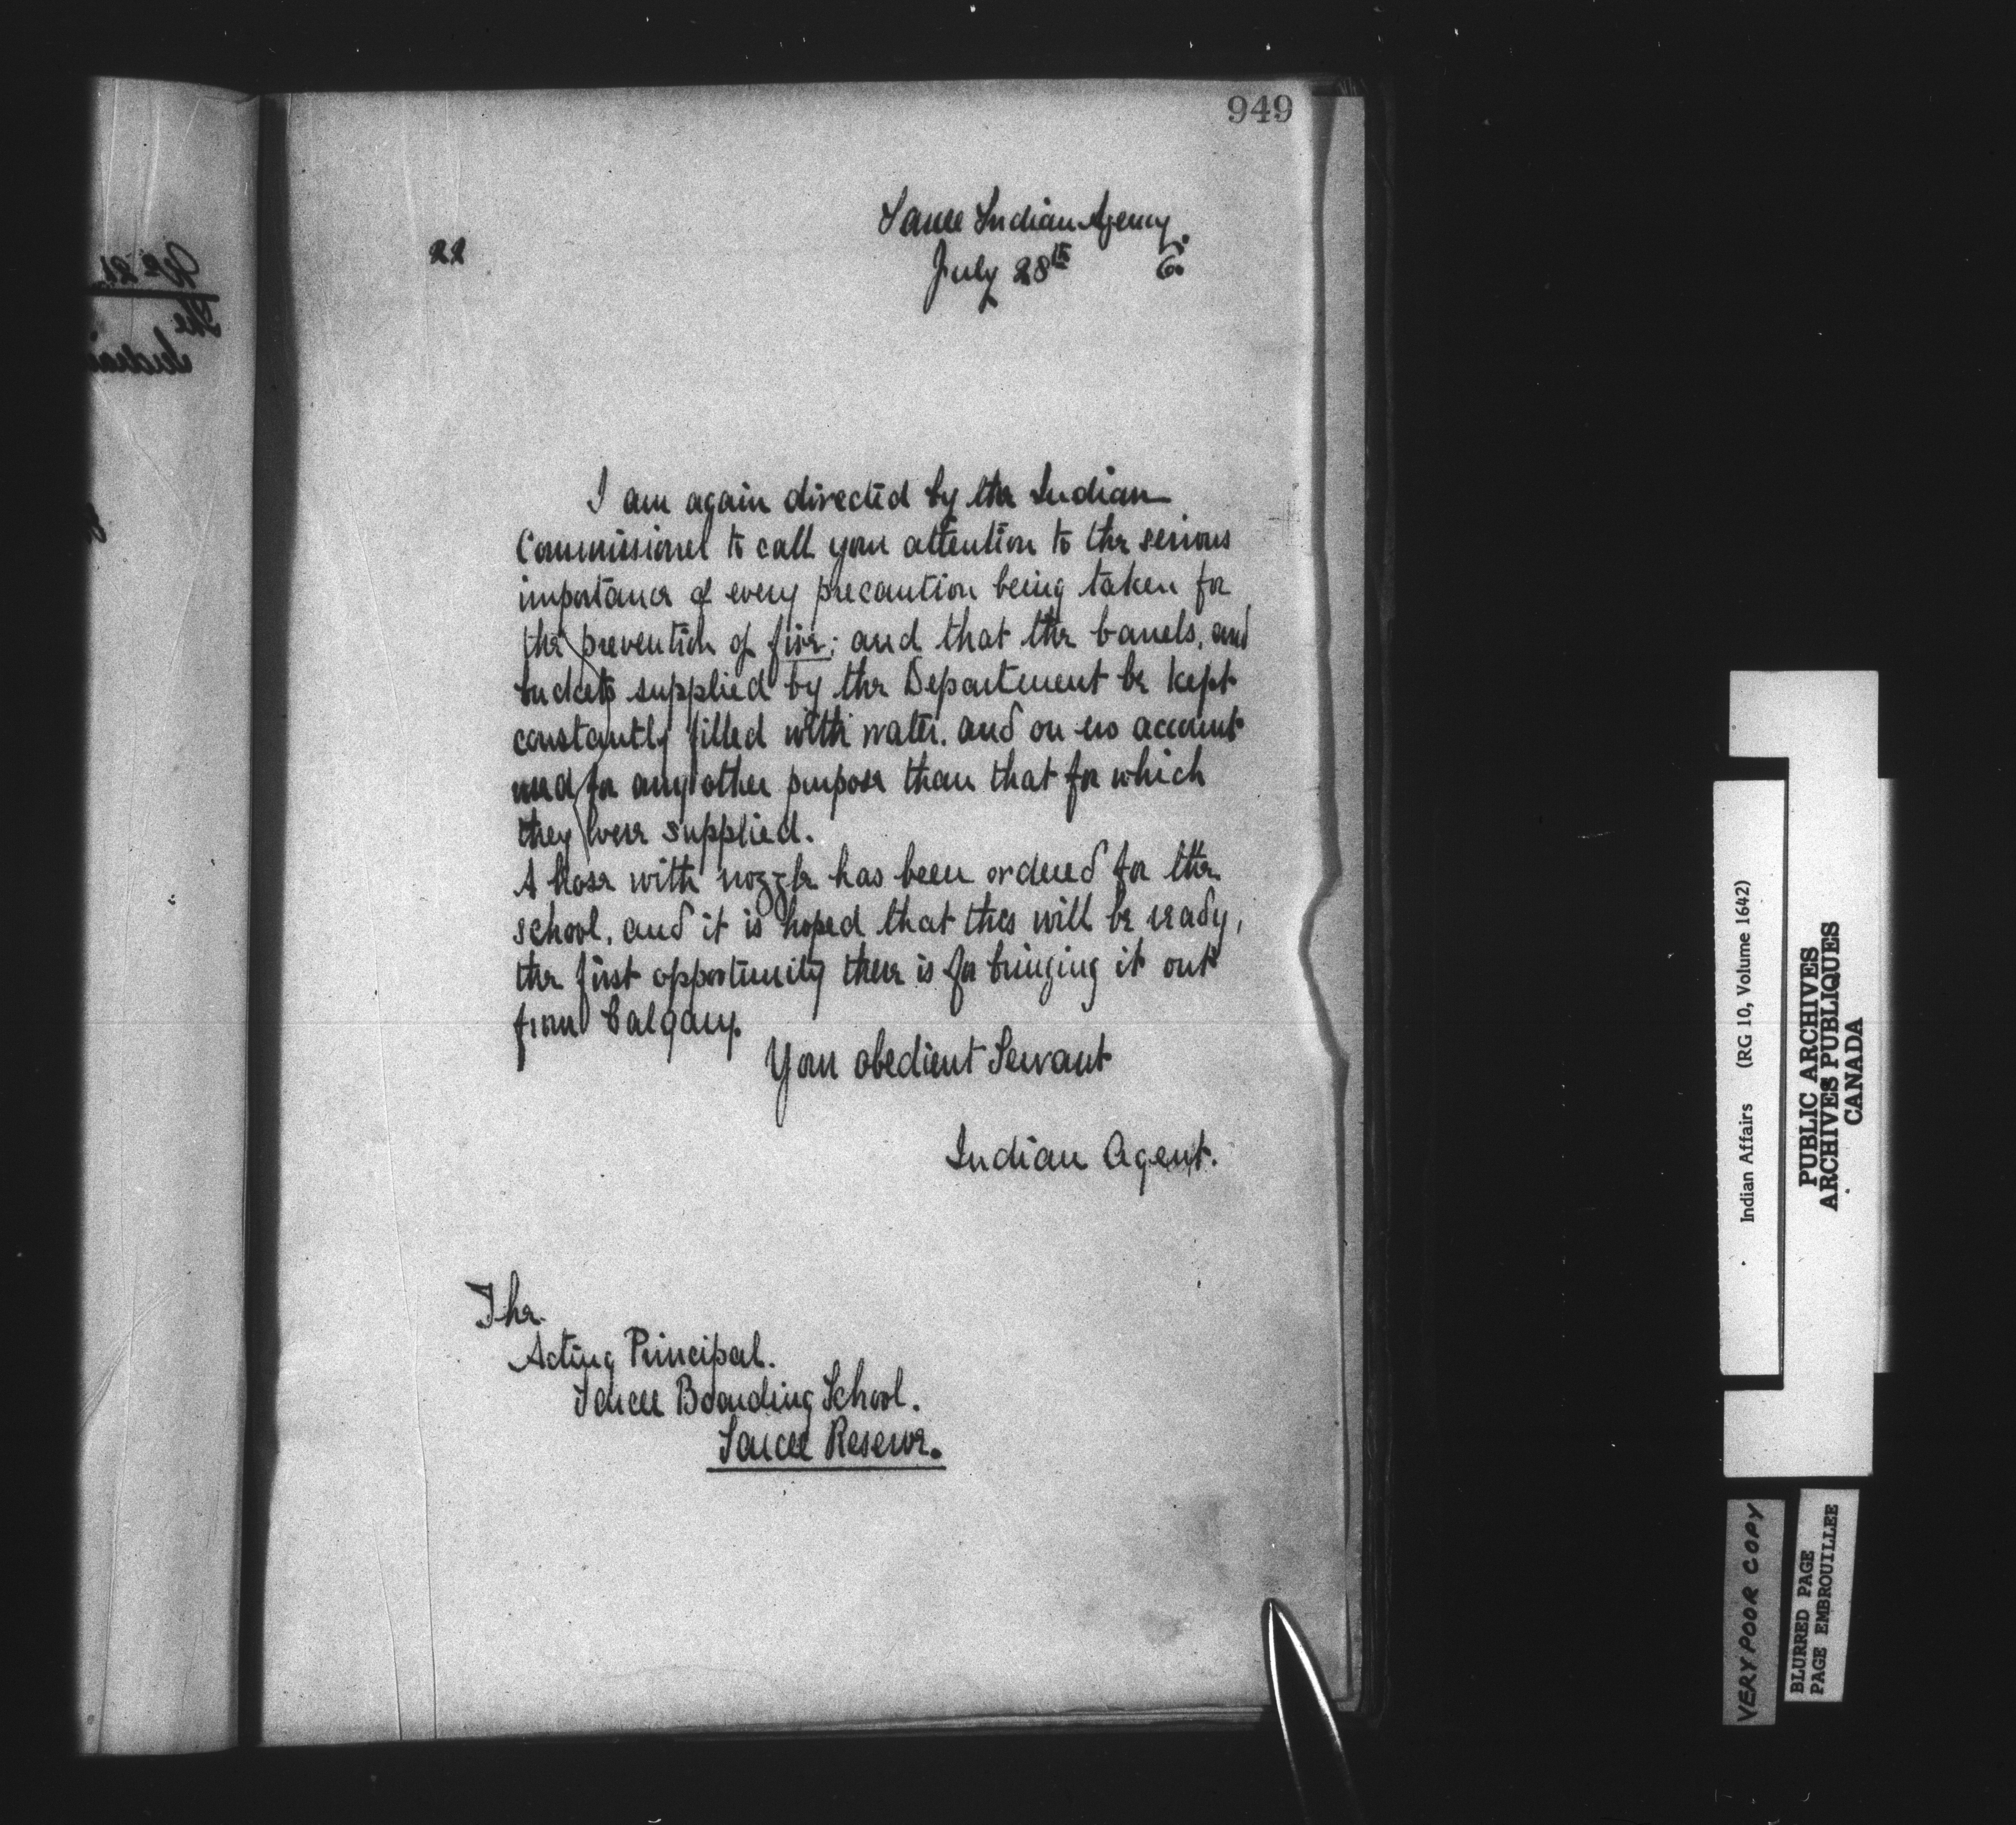 949
Sarcee Indian Agency.
22
July 28th 6.
I am again directed by the Indian
Commissioner to call your attention to the serious
importance of every precaution being taken for
the prevention of fire; and that the barrels, and
buckets supplied by the Department be kept
constantly filled with water. and on no account
used for any other purpose than that for which
they were supplied.
A hose with nozzle has been ordered for the
school, and it is hoped that this will be ready,
the first opportunity there is for bringing it out
from Calgary.
Your obedient Servant
Indian Agent.
The
Acting Principal.
Sarcee Boarding School.
Sarcee Reserve.
Indian Affairs (RG 10, Volume 1642)
PUBLIC ARCHIVES
ARCHIVES PUBLIQUES
CANADA
VERY POOR COPY
BLURRED PAGE
PAGE EMBROUILLEE